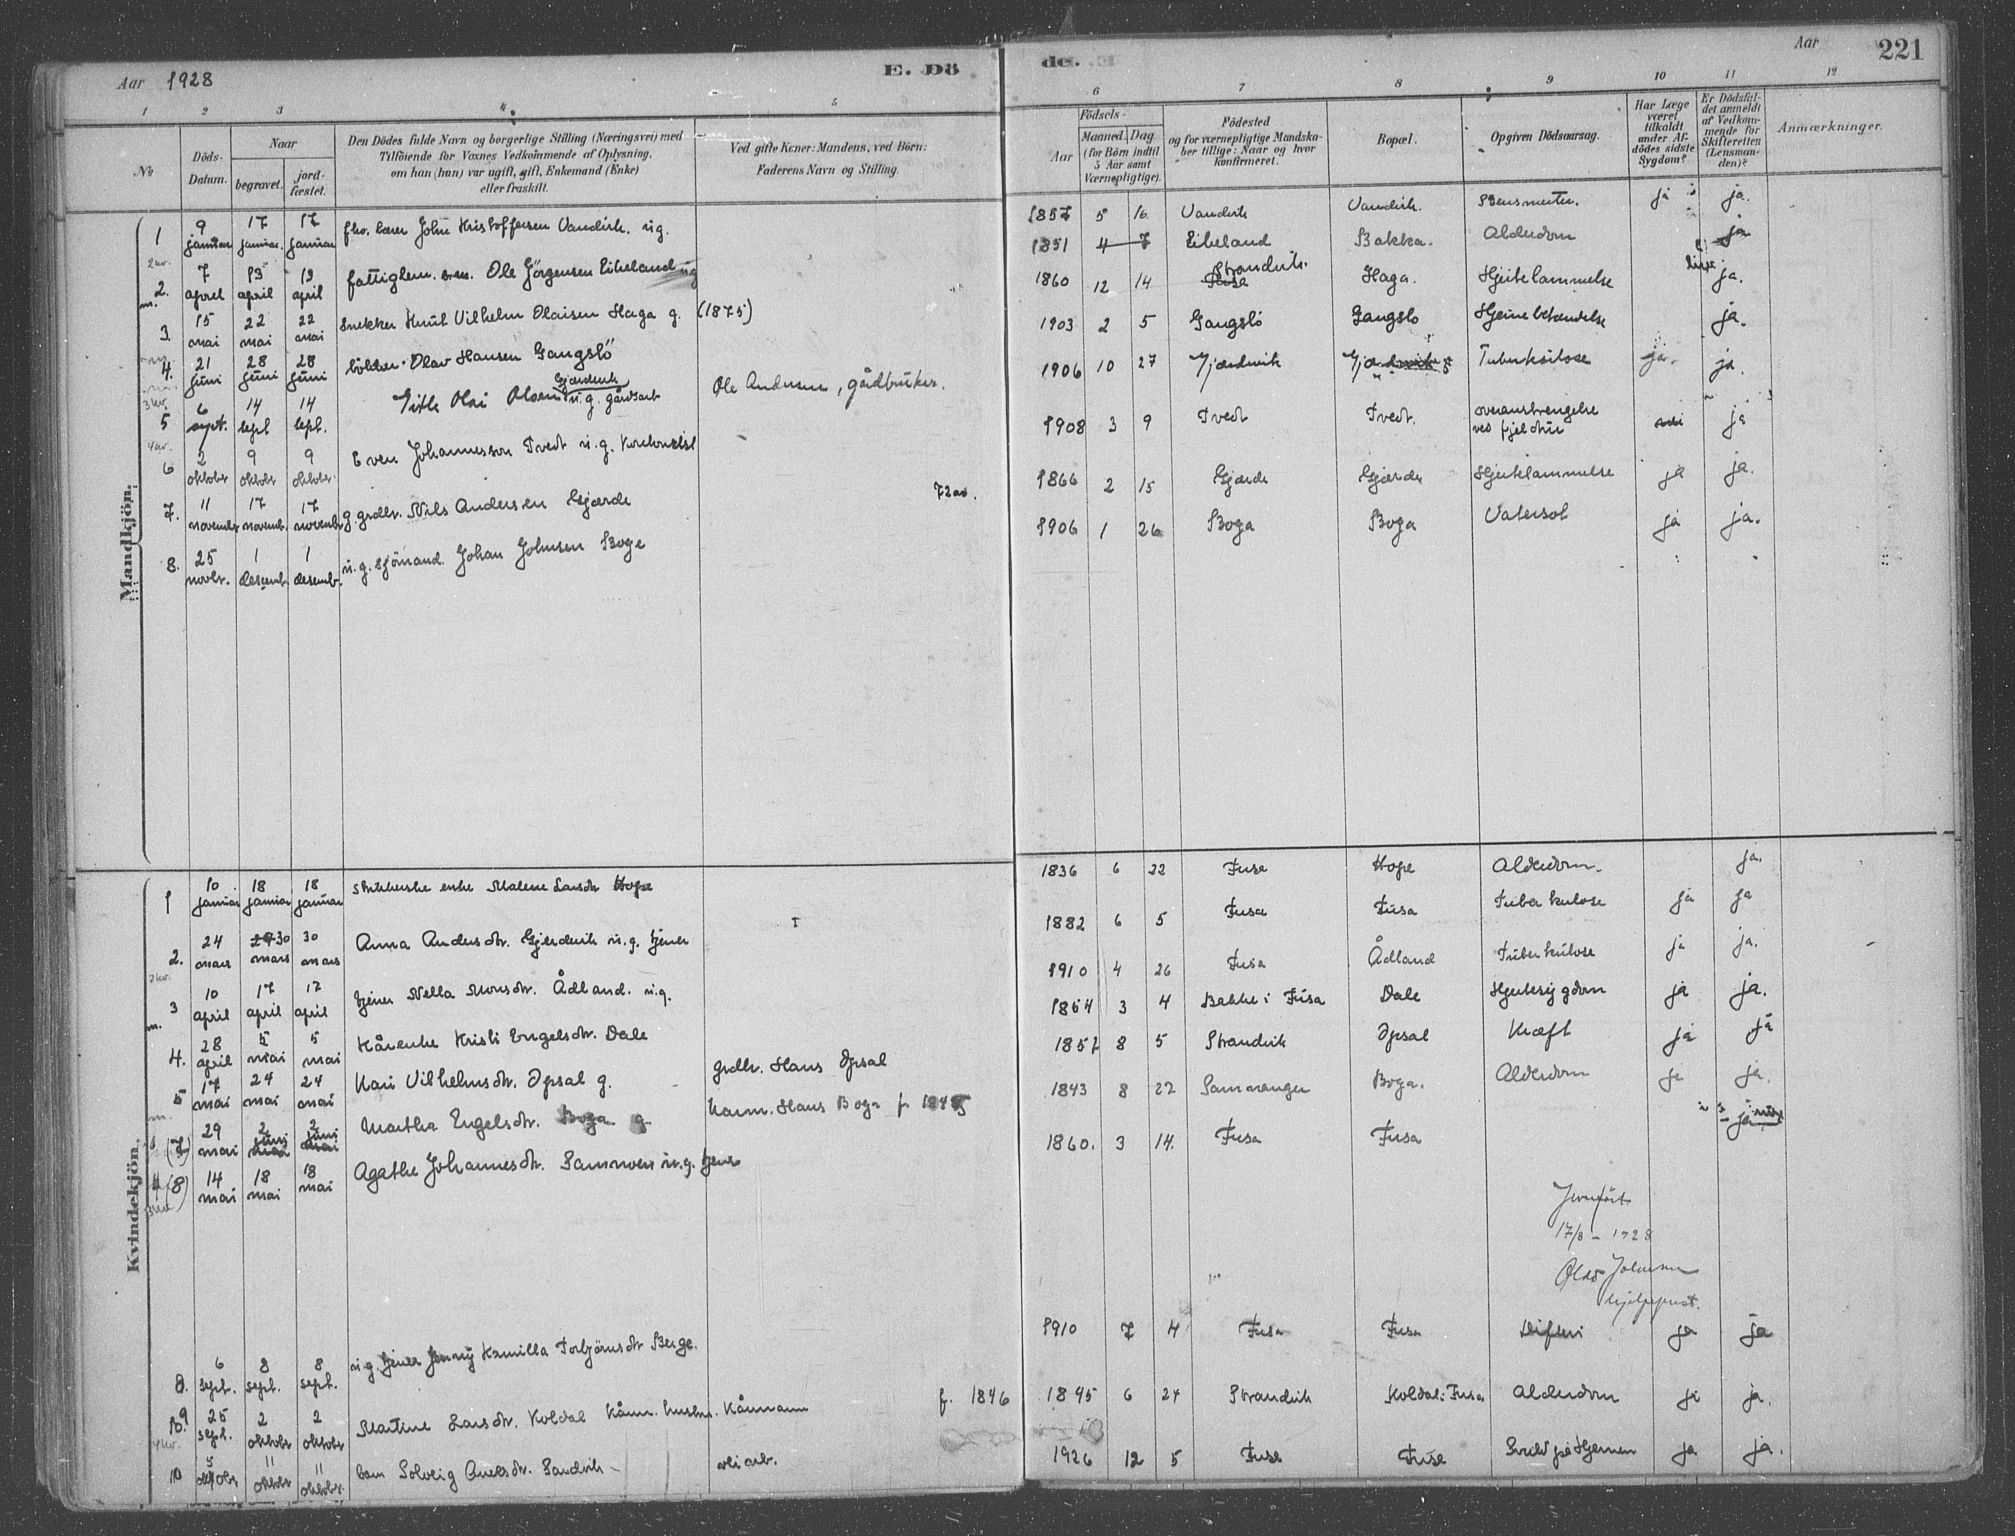 Aar 1928 E. Dö
de. Aar 221
1 2 3 4 5 6 7 8 9 10 11 12
No Döds-Datum. Naar begravet. jord-fæstet. Den Dödes fulde Navn og borgerlige Stilling (Næringsvei) med Tilföiende for Voxnes Vedkommende af Oplysning, om han (hun) var ugift, gift, Enkemand (Enke) eller fraskilt. Ved gifte Koner: Mandens, ved Börn: Faderens Navn og Stilling.
Födsels- Aar Maaned. Dag. (for Börn indtil 5 Aar samt Værnepligtige). Födested og for værnepligtige Mandskaber tillige: Naar og hvor konfirmeret. Bopæl. Opgiven Dödsaarsag. Har Læge været tilkaldt under Afdödes sidste Sygdom? Er Dödsfaldet anmeldt af Vedkommende for Skifteretten (Lensmanden)? Anmærkninger.
Mandkjön.
1 9 januar 17 januar 17 januar fhv. lærer John Kristoffersen Vandvik. ug. 1857 5 16 Vandvik Vandvik. ja ja.
2 kv.
2. 7 april 13 april 13 april fattiglem Ole Jörgensen Eikeland ug 1851 4 7 Eikeland Bakka. Alderdom ja
m.
3. 15 mai 22 mai 22 mai snekker Knut Vilhelm Olaisen Haga g. (1875) 1860 12 14 Strandvik Fusa Haga. Hjertelammelse ja.
4. 21 juni 28 juni 28 juni Olav Hansen Gangslö 1903 2 5 Gangslö Gangslö ja.
3 kv.
5 6 sept. 14 sept 14 sept. Olai Olsen Gjærdevik u.g. gårdsarb Ole Andersen, gårdbruker. 1906 10 27 Gjærdevik Tuberkulose ja. ja.
4 kv.
6 2 oktober 9 oktober 9 oktober Even Johannesson Tvedt u.g. 1908 3 9 Tvedt Tvedt. overanstrengelse ved fjeldtur ja
7. 11 november 17 novemb. 17 novemb. g. grdbr. Nils Andersen Gjærde 72 1866 2 15 Gjærde Gjærde Hjertelammelse ja ja.
8. 25 novbr. 1 desemb. 1 desemb. u.g. sjömand Johan Johnsen Boge 1906 1 26 Boga Boga ja ja.
Kvindekjön.
1 10 januar 18 januar 18 januar enke Malene Larsdtr Hope 1836 6 22 Fusa Hope Alderdom. ja.
2. 24 mars 29 30 mars 30 mars Anna Andersdtr. Gjærdevik u.g. tjener 1882 6 5 Fusa Fusa Tuberkulose ja ja
2 kv.
3 10 april 17 april 17 april tjener Nella Monsdtr. Ådland. u.g. 1910 4 26 Fusa Ådland Tuberkulose ja ja.
m.
4. 28 april 5 mai 5 mai Kårenke Kristi Engelsdtr. Dale 1854 3 4 Bakke i Fusa Dale Hjertesygdom ja ja.
5 17 mai 24 mai 24 mai Kari Vilhelmsdtr. Opsal g. grdbr. Hans Opsal 1857 8 5 Strandvik Opsal Kræft ja ja
m.
(7) 29 mai 2 juni mai 2 juni mai Martha Engelsdtr. Boga g Kaarm. Hans Boga f 1845 1843 8 22 Samnanger Boga. Alderdom ja ja.
(8) 14 mai 18 mai 18 mai Agathe Johannesdtr. Samnöen u.g. tjener 1860. 3 14. Fusa Fusa ja
3 kv.
Jevnfört
17/8 - 1928
Johansen
8. 6 sept. 8 sept. 8 sept. u.g. tjener Jenny Kamilla Torbjörnsdtr Berge. 1910 7 4 Fusa Fusa Difteri ja ja
9 25 sept. 2 oktober 2 oktober Martine Larsdtr. Koldal Kårm. hustru. Kårmann f. 1846 1845 6 24 Strandvik Koldal i Fusa Alderdom ja ja.
4 kv.
10 5 oktobr 11 oktobr 11 oktobr. barn Solveig Sandvik veiarb. 1926 12 5 Fusa Fusa på Hjernen ja ja.